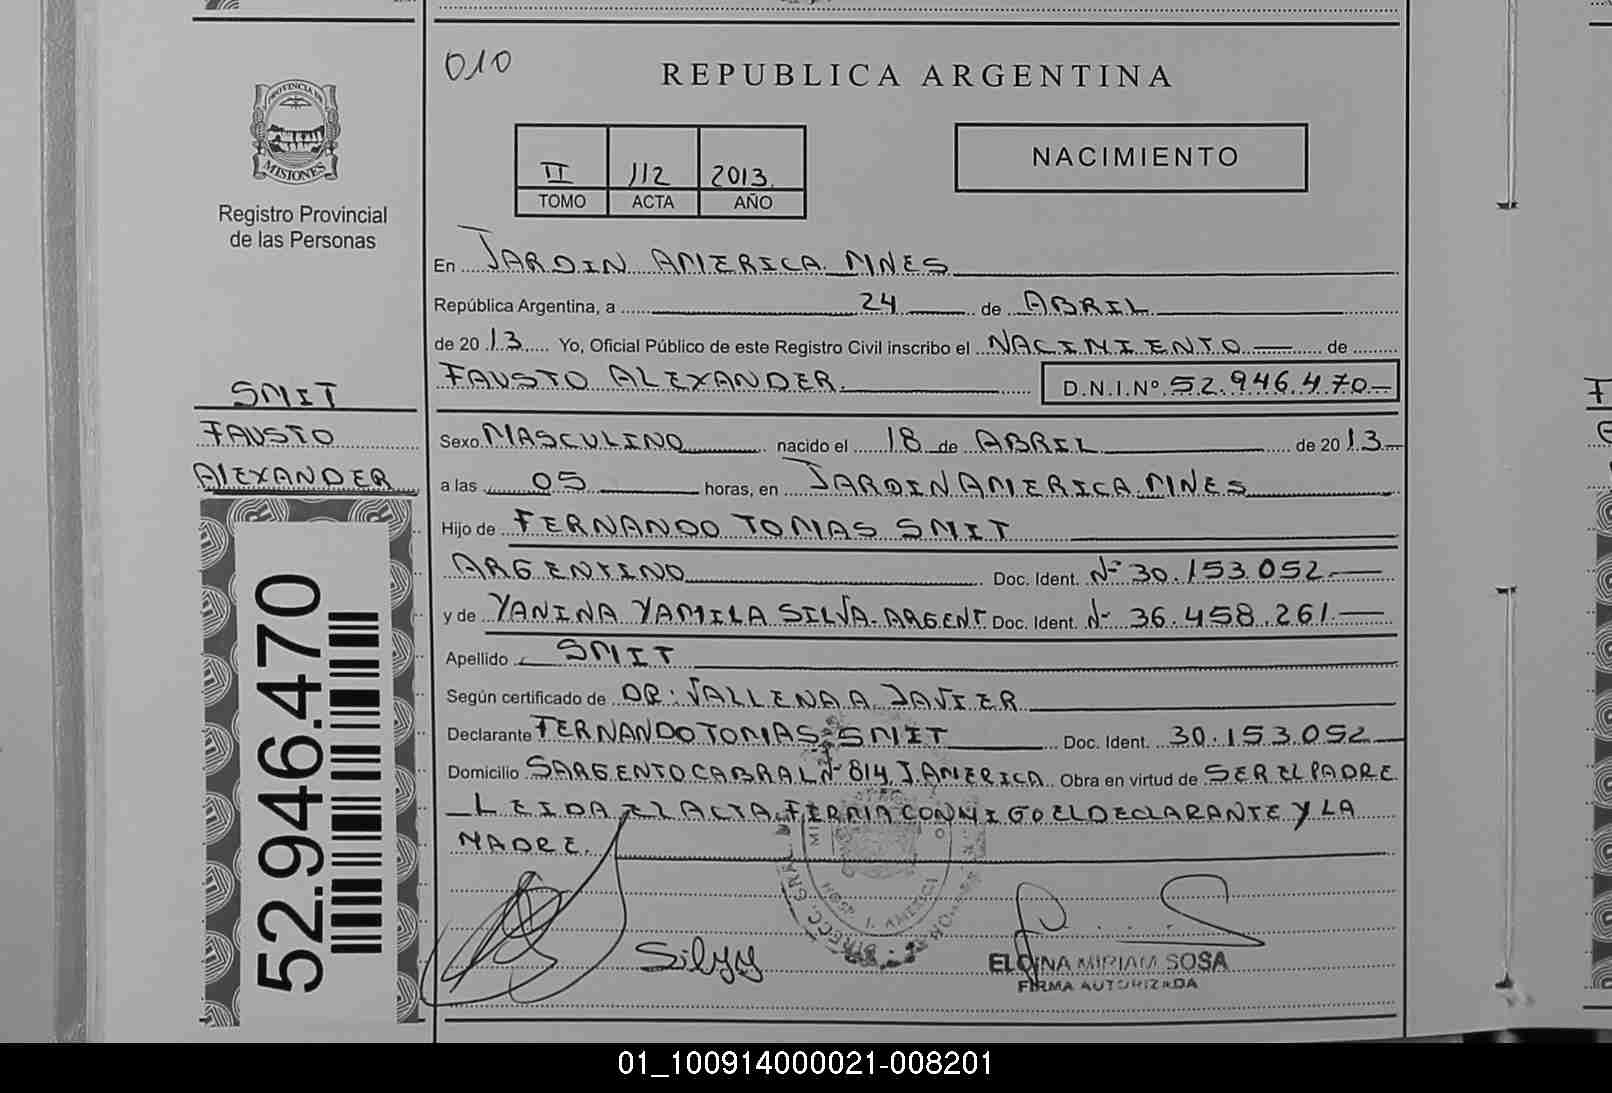 010
REPUBLICA ARGENTINA
PROVINCIA DE
MISIONES
Registro Provincial
de las Personas
II 112 2013
TOMO ACTA AÑO
NACIMIENTO
En JARDIN AMERICA MNES
República Argentina, a 24 de ABRIL
de 20 13 Yo, Oficial Público de este Registro Civil inscribo el NACIMIENTO de
FAUSTO ALEXANDER. D.N.I.Nº 52.946.470
SMIT
FAUSTO
ALEXANDER
52.946.470
Sexo MASCULINO nacido el 18 de ABRIL de 20 13
a las 05 horas, en JARDIN AMERICA MNES
Hijo de FERNANDO TOMAS SMIT
ARGENTINO Doc. Ident. Nº 30.153.052
y de YANINA YAMILA SILVA. ARGENT. Doc. Ident. Nº 36.458.261
Apellido SMIT
Según certificado de DR: JAVIER
Declarante FERNANDO TOMAS SMIT Doc. Ident. 30.153.052
Domicilio SARGENTO CABRAL Nº 814 J. AMERICA Obra en virtud de SER EL PADRE
LEIDA EL ACTA, FIRMA CONMIGO EL DECLARANTE Y LA
MADRE.
ELOINA MIRIAM SOSA
FIRMA AUTORIZADA
01_100914000021-008201